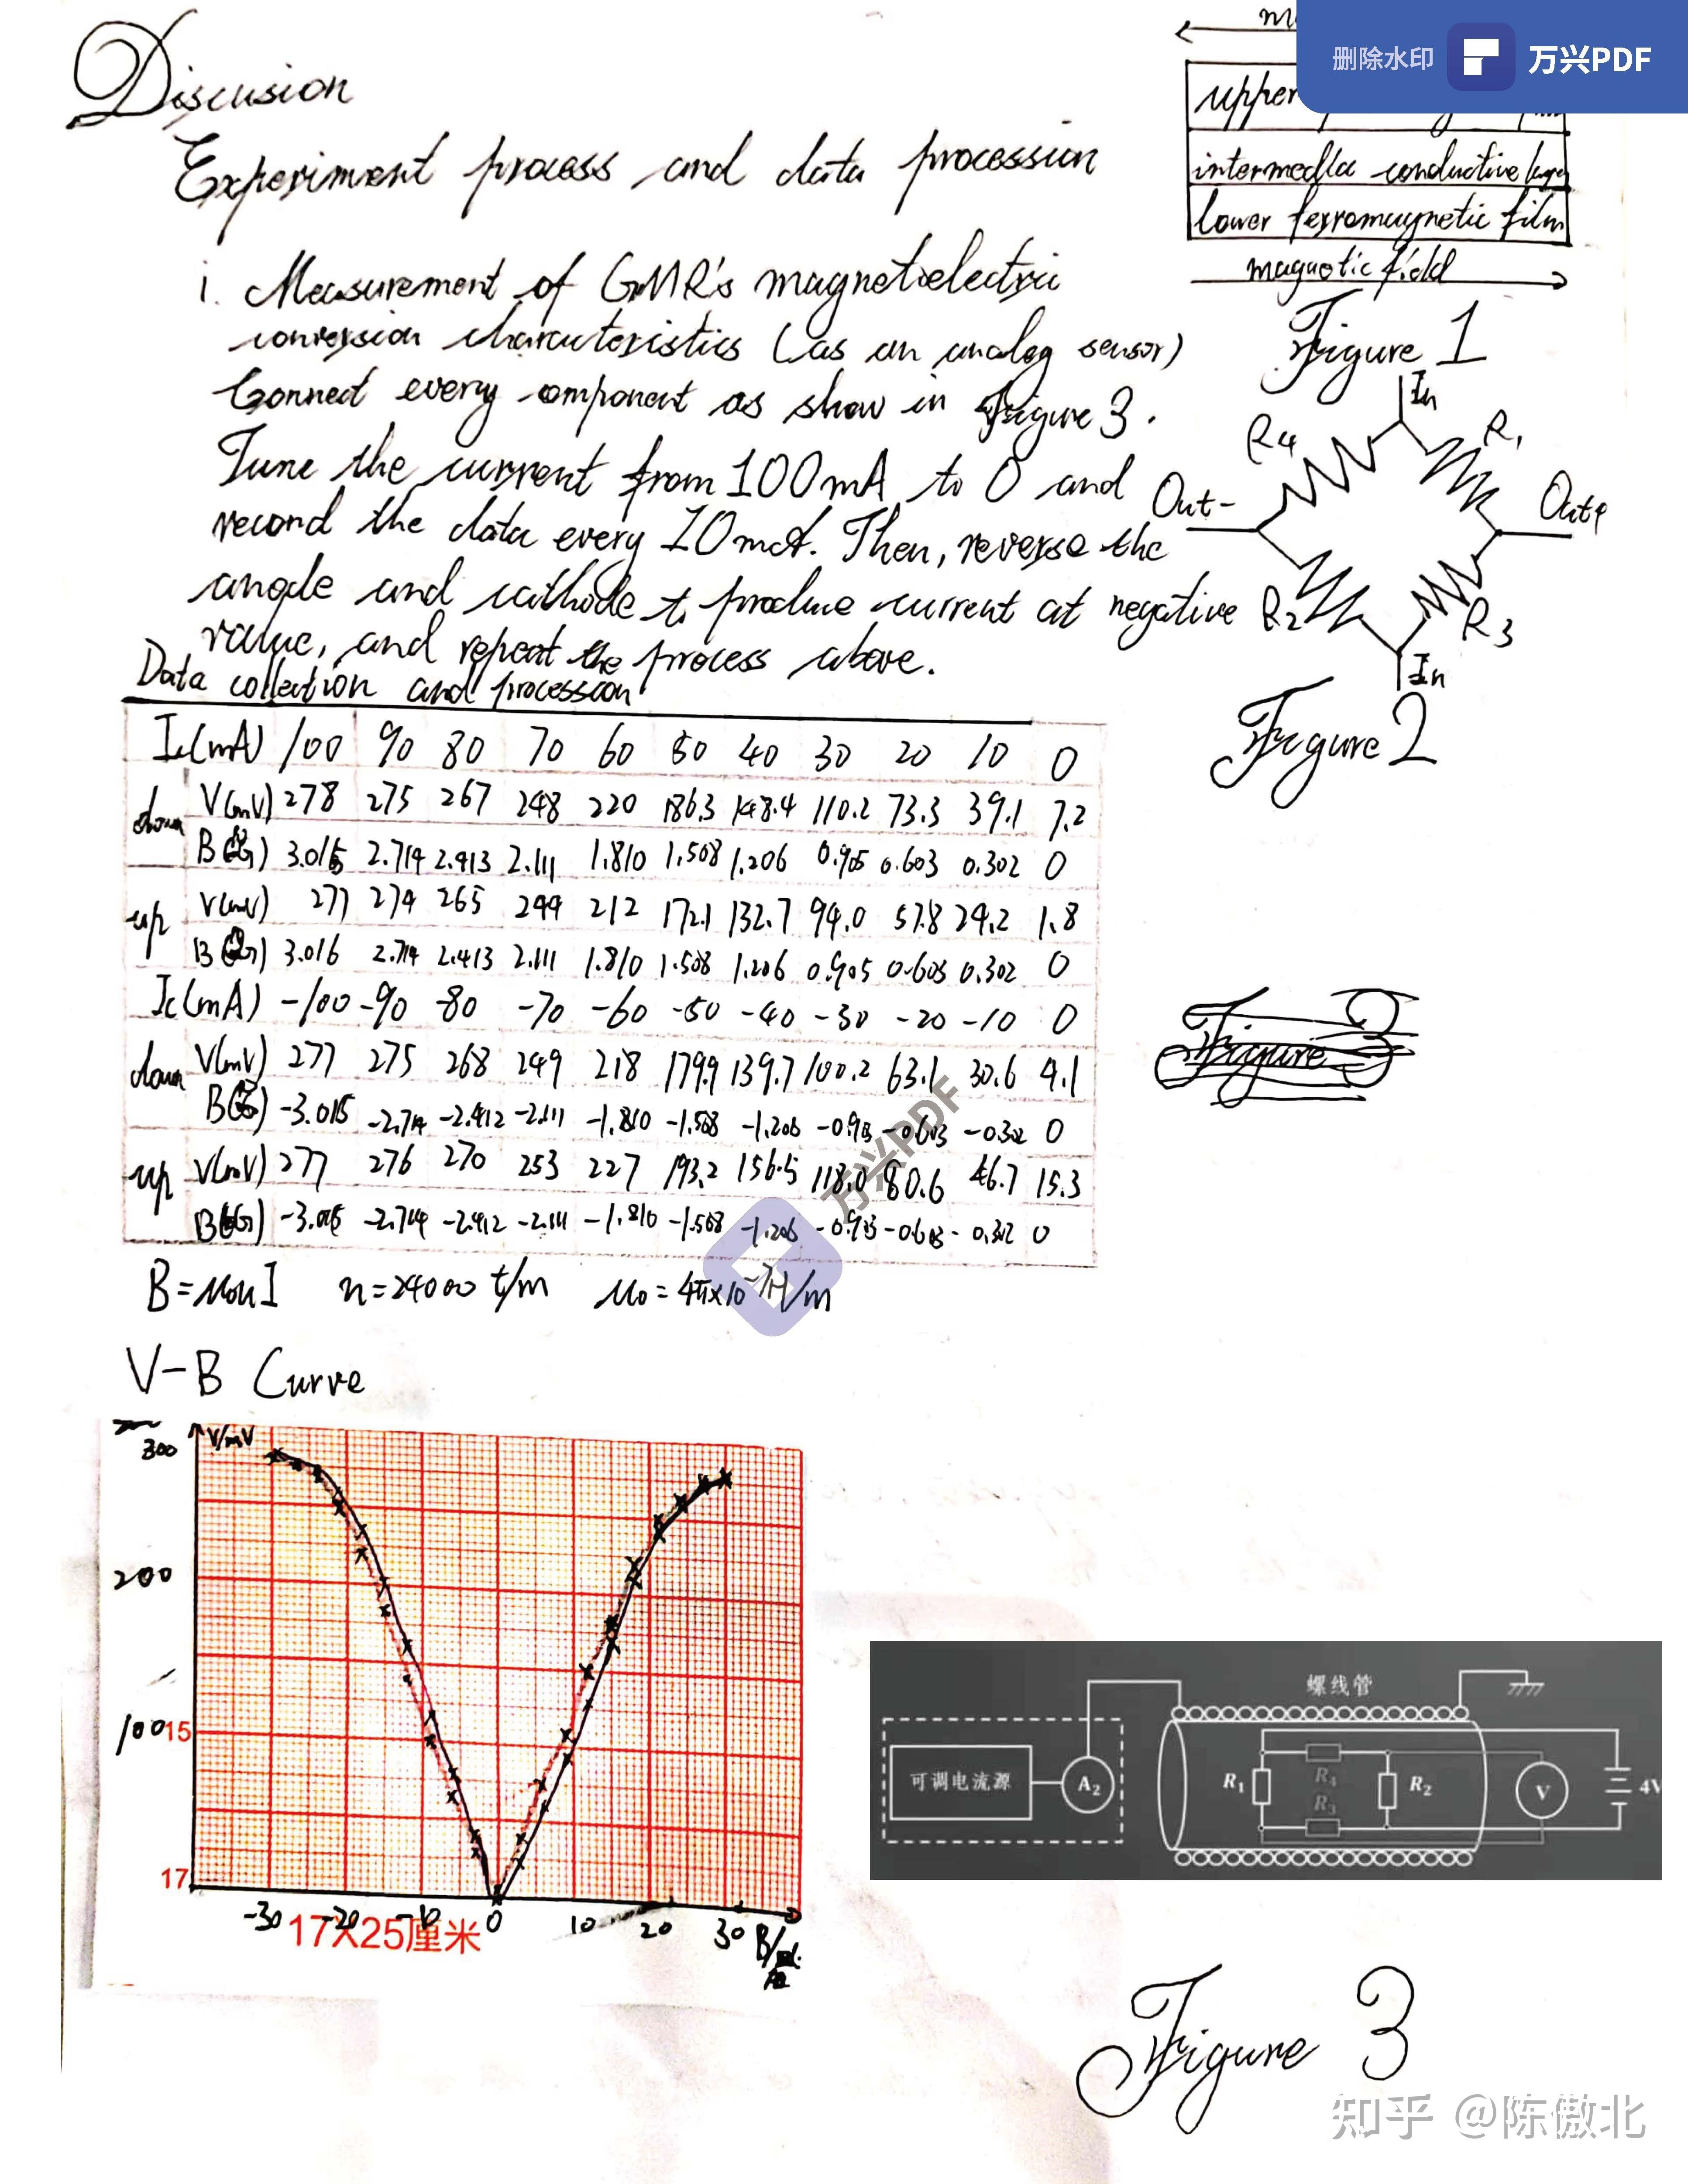 删除水印 万兴PDF
Discusion
Experiment process and data procession
upper
intermedla conductive layer
lower ferromagnetic film
magnetic field
Figure 1
i. Measurement of GMR's magnetoelectric
conversion characteristics (as an analog sensor)
Connect every component as show in Figure 3.
Tune the current from 100mA to 0 and
record the data every 10mA. Then, reverse the
anode and cathode to produce current at negative
value, and repeat the process above.
In
R4 R1
Out- Out+
R2 R3
In
Figure 2
Data collection and procession
Ic(mA) 100 90 80 70 60 50 40 30 20 10 0
down V(mV) 278 275 267 248 220 186.3 148.4 110.2 73.3 39.1 7.2
B(G) 3.016 2.714 2.413 2.111 1.810 1.508 1.206 0.905 0.603 0.302 0
up V(mV) 277 274 265 244 212 172.1 132.7 94.0 57.8 24.2 1.8
B(G) 3.016 2.714 2.413 2.111 1.810 1.508 1.206 0.905 0.603 0.302 0
Ic(mA) -100 -90 -80 -70 -60 -50 -40 -30 -20 -10 0
down V(mV) 277 275 268 249 218 179.9 139.7 100.2 63.1 30.6 4.1
B(G) -3.015 -2.714 -2.412 -2.111 -1.810 -1.508 -1.206 -0.903 -0.603 -0.302 0
up V(mV) 277 276 270 253 227 193.2 156.5 118.0 80.6 46.7 15.3
B(G) -3.015 -2.714 -2.412 -2.111 -1.810 -1.508 -1.206 -0.903 -0.603 -0.302 0
万兴PDF
Figure 3
B=μ0nI n=24000 t/m μ0=4π×10⁻⁷H/m
V-B Curve
V/mV
300
200
100 15
17
-30 -20 -10 0 10 20 30 B/
17X25厘米
螺线管
可调电流源 A2
R1 R4 R2 V 4V
R3
Figure 3
知乎 @陈傲北